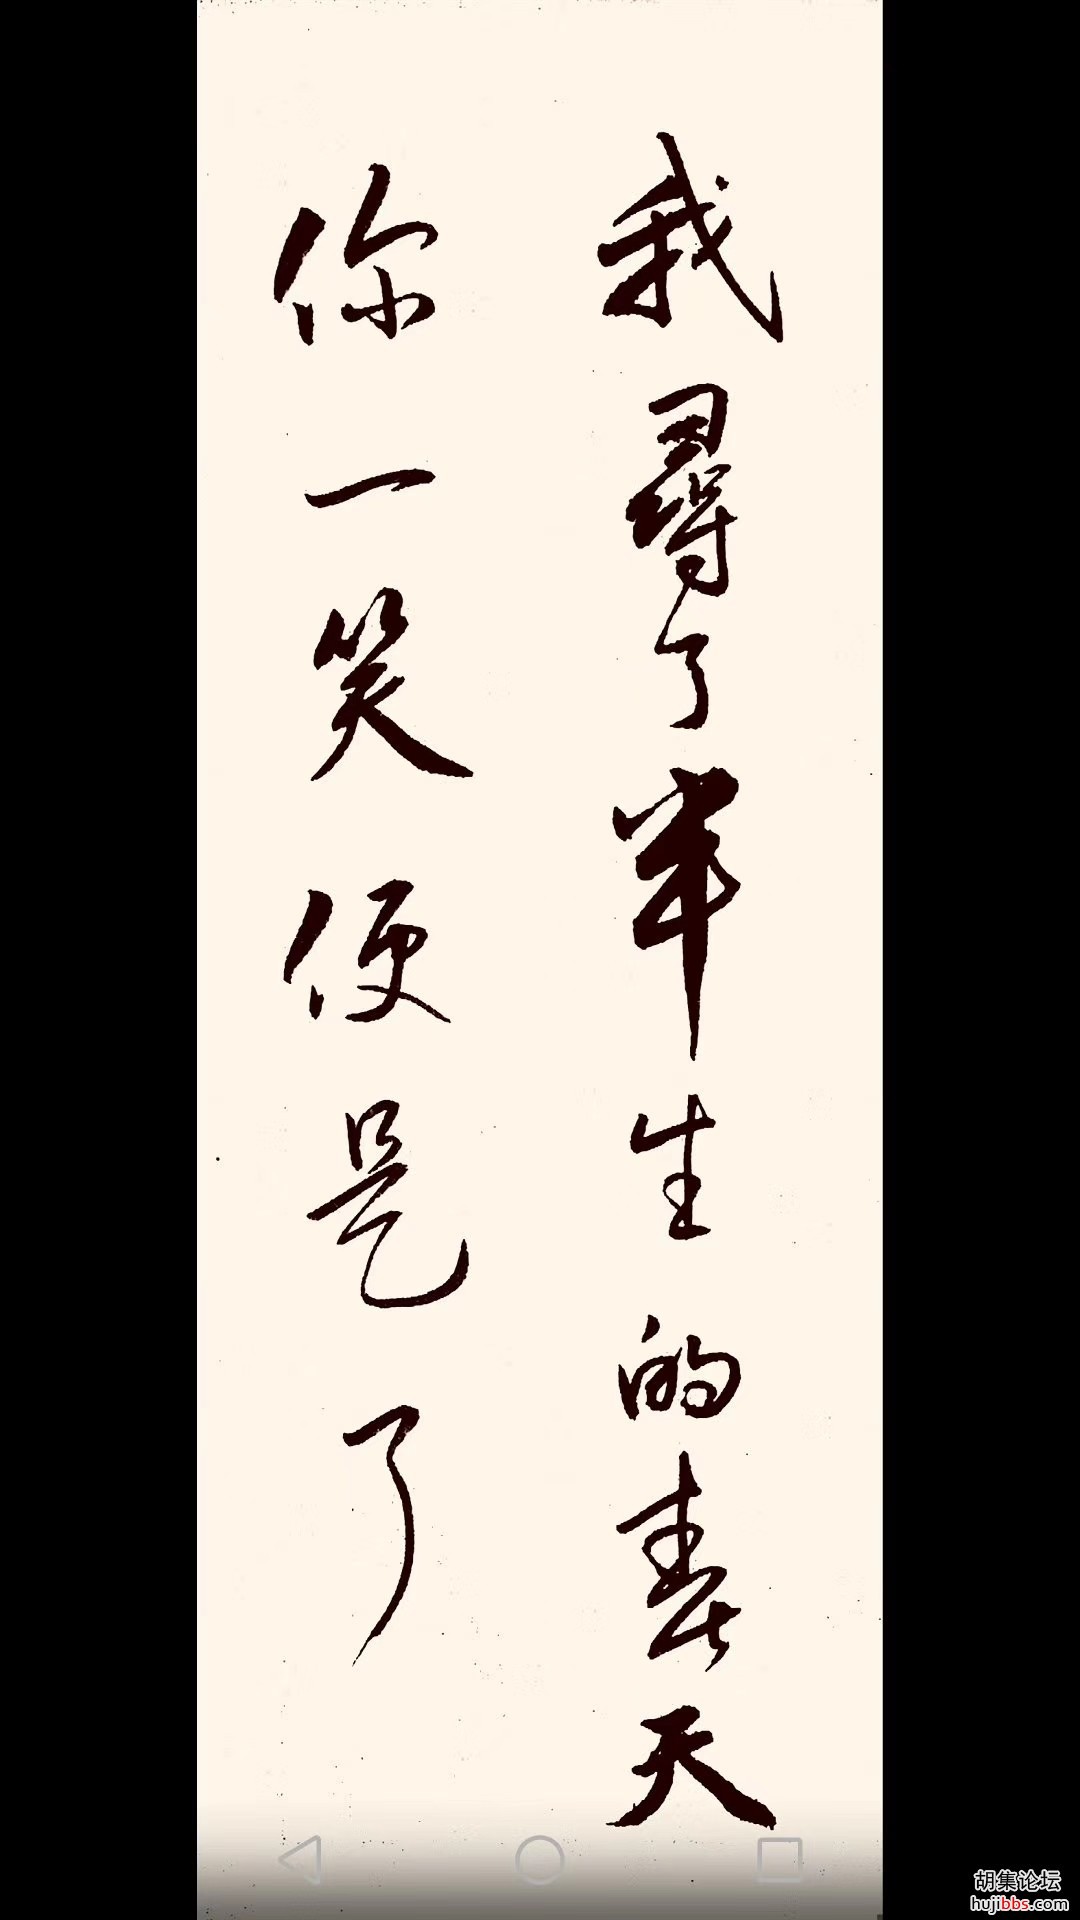 我尋了半生的春天
你一笑便是了
胡集论坛
hujibbs.com